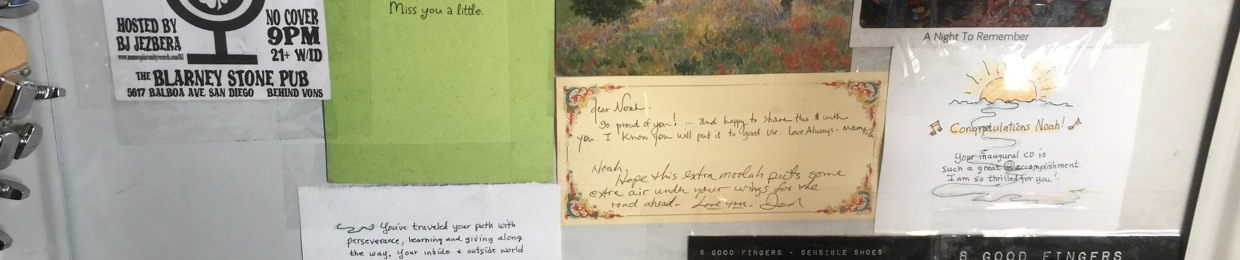 HOSTED BY
BJ JEZBERA
NO COVER
9PM
21+ W/ID
THE BLARNEY STONE PUB
5617 BALBOA AVE SAN DIEGO BEHIND VONS
Miss you a little.
You've traveled your path with
perseverance, learning and giving along
the way. Your inside & outside world
dear Noah
So proud of you! ... and happy to share this $ with
you. I know you will put it to good use. Love Always - mama
Noah,
Hope this extra moolah puts some
extra air under your wings for the
road ahead - Love you. Dad
A Night To Remember
Congratulations Noah!
Your inaugural CD is
such a great accomplishment
I am so thrilled for you!
8 GOOD FINGERS - SENSIBLE SHOES
8 GOOD FINGERS